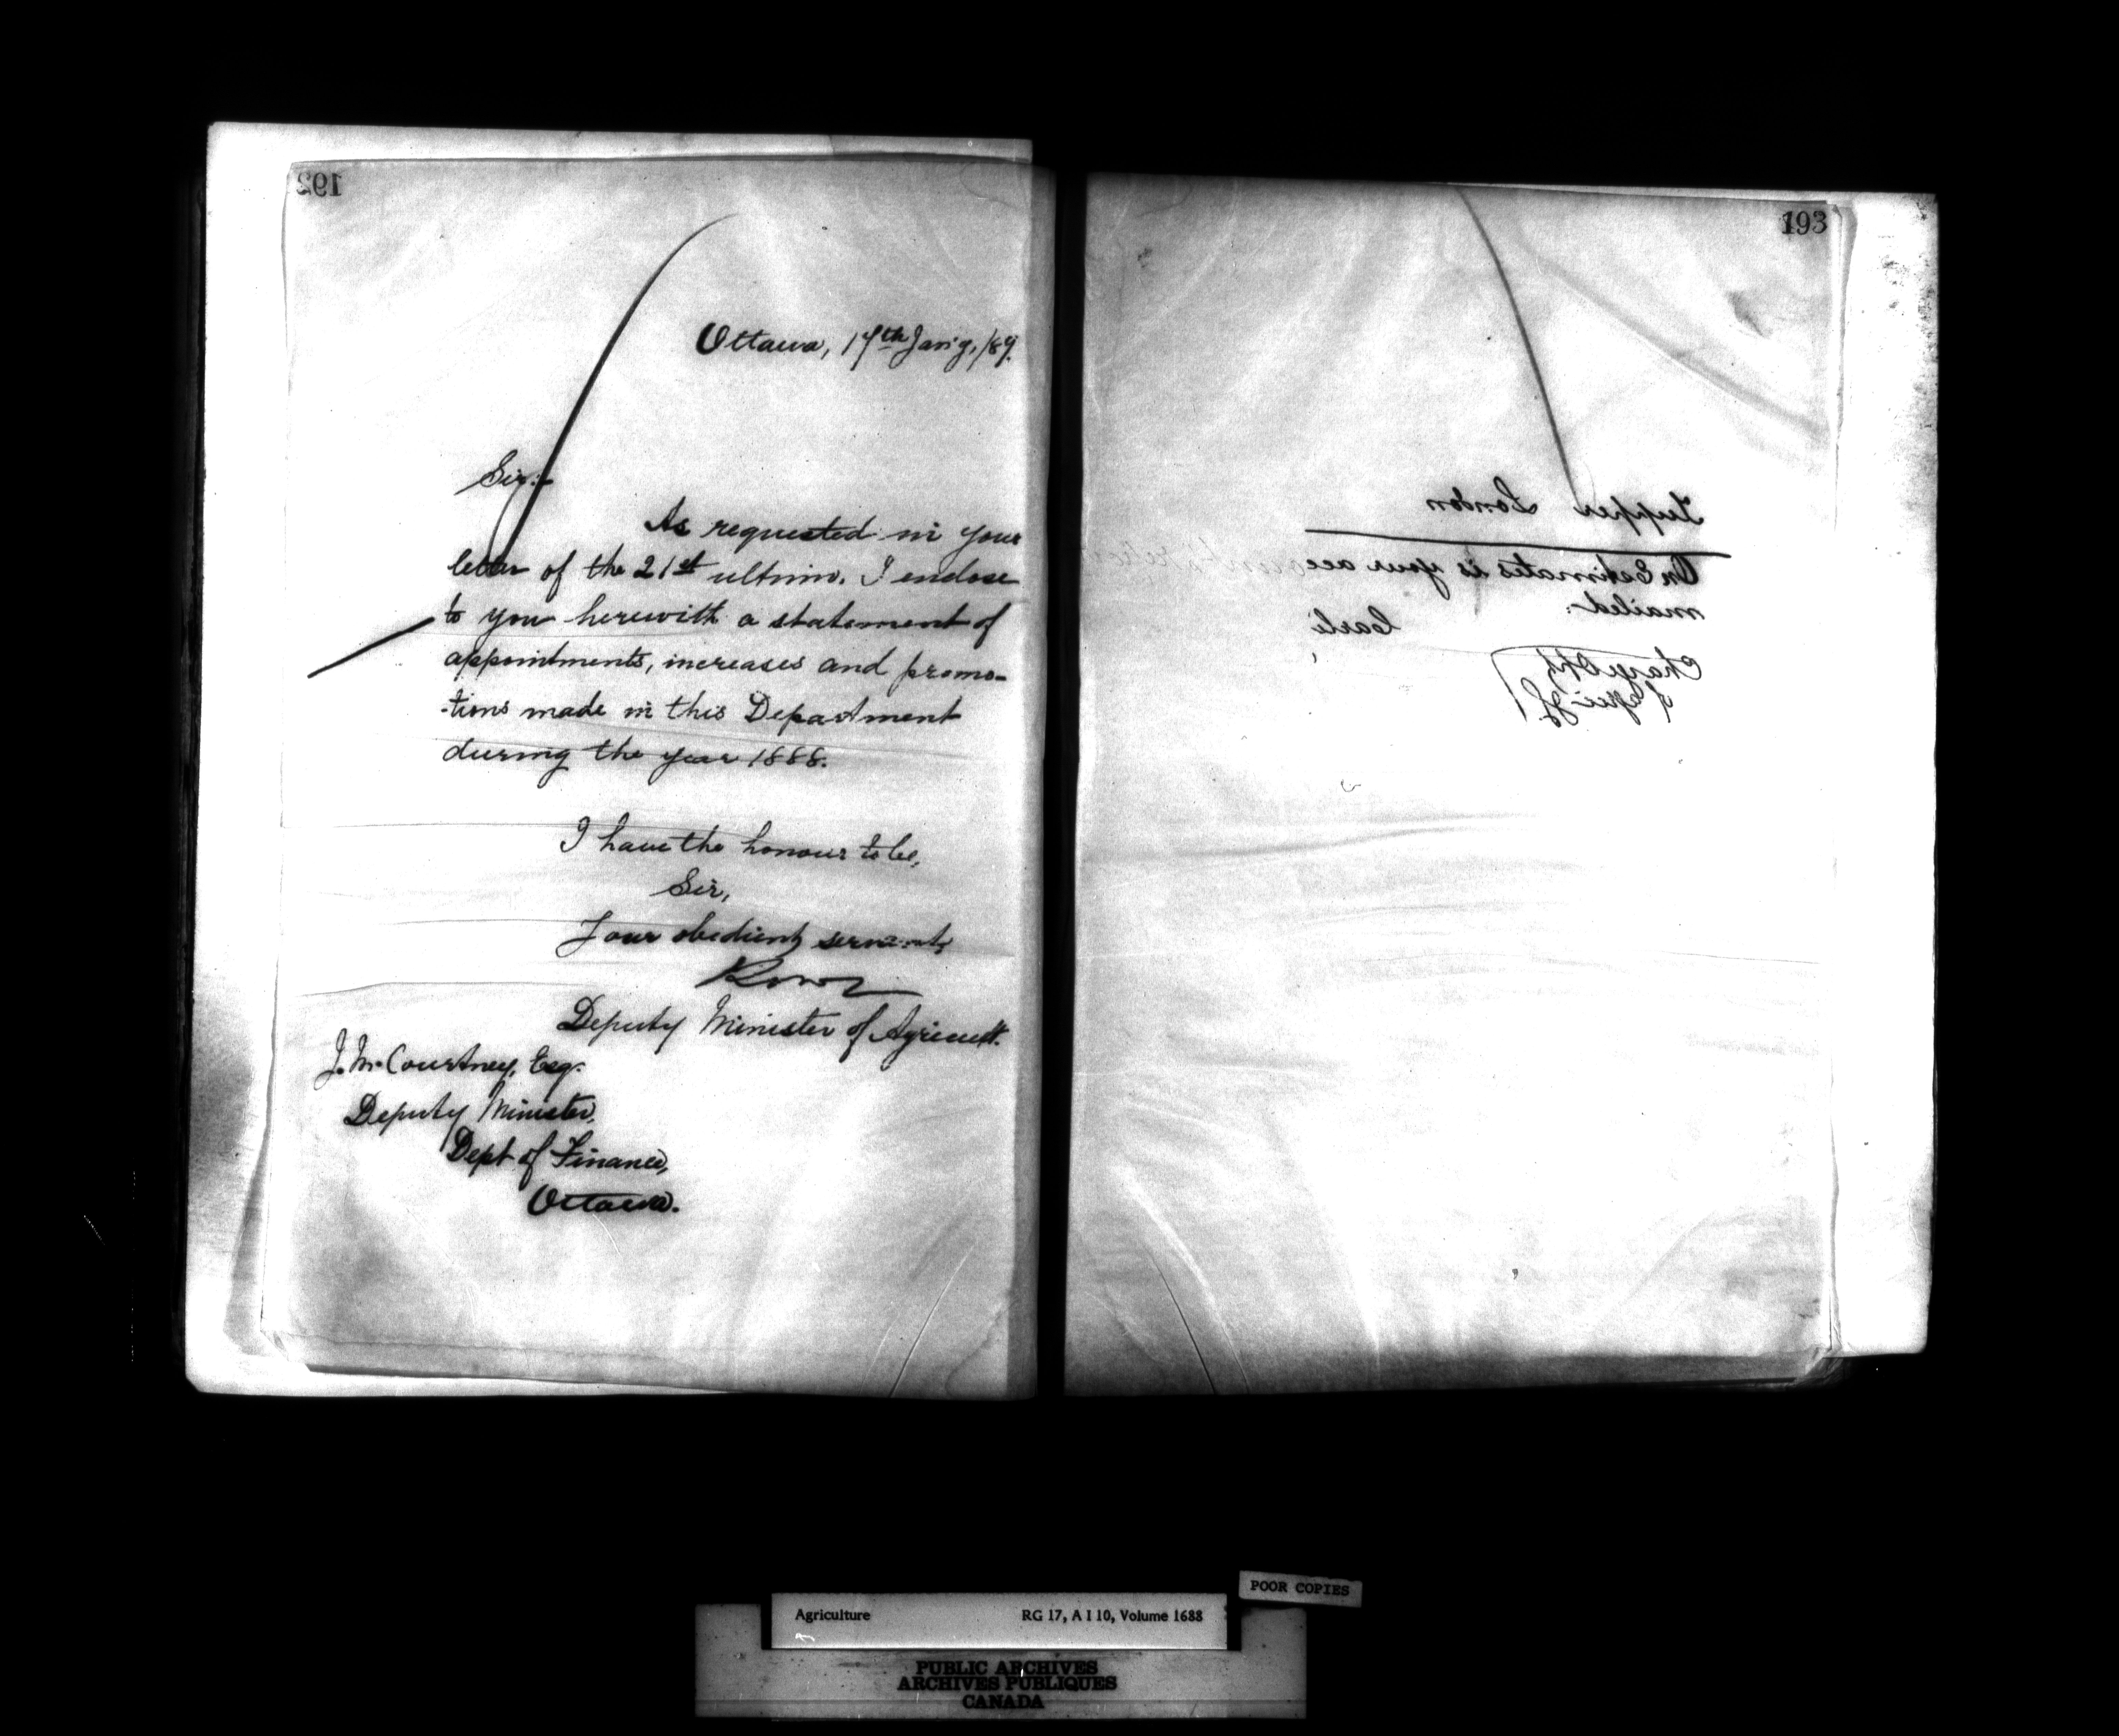 192
Ottawa, 17th Jan'y, /89.
Sir:-
As requested in your
letter of the 21st ultimo. I enclose
to you herewith a statement of
appointments, increases and promo-
-tions made in this Department
during the year 1888.
I have the honour to be,
Sir,
Your obedient servant,
Deputy Minister of Agricult.
J. M. Courtney, Esq.
Deputy Minister,
Dept of Finance,
Ottawa.
193
Tupper London
On Estimates is your acc
mailed.
Carli
Charge
Agric
POOR COPIES
Agriculture RG 17, A I 10, Volume 1688
PUBLIC ARCHIVES
ARCHIVES PUBLIQUES
CANADA